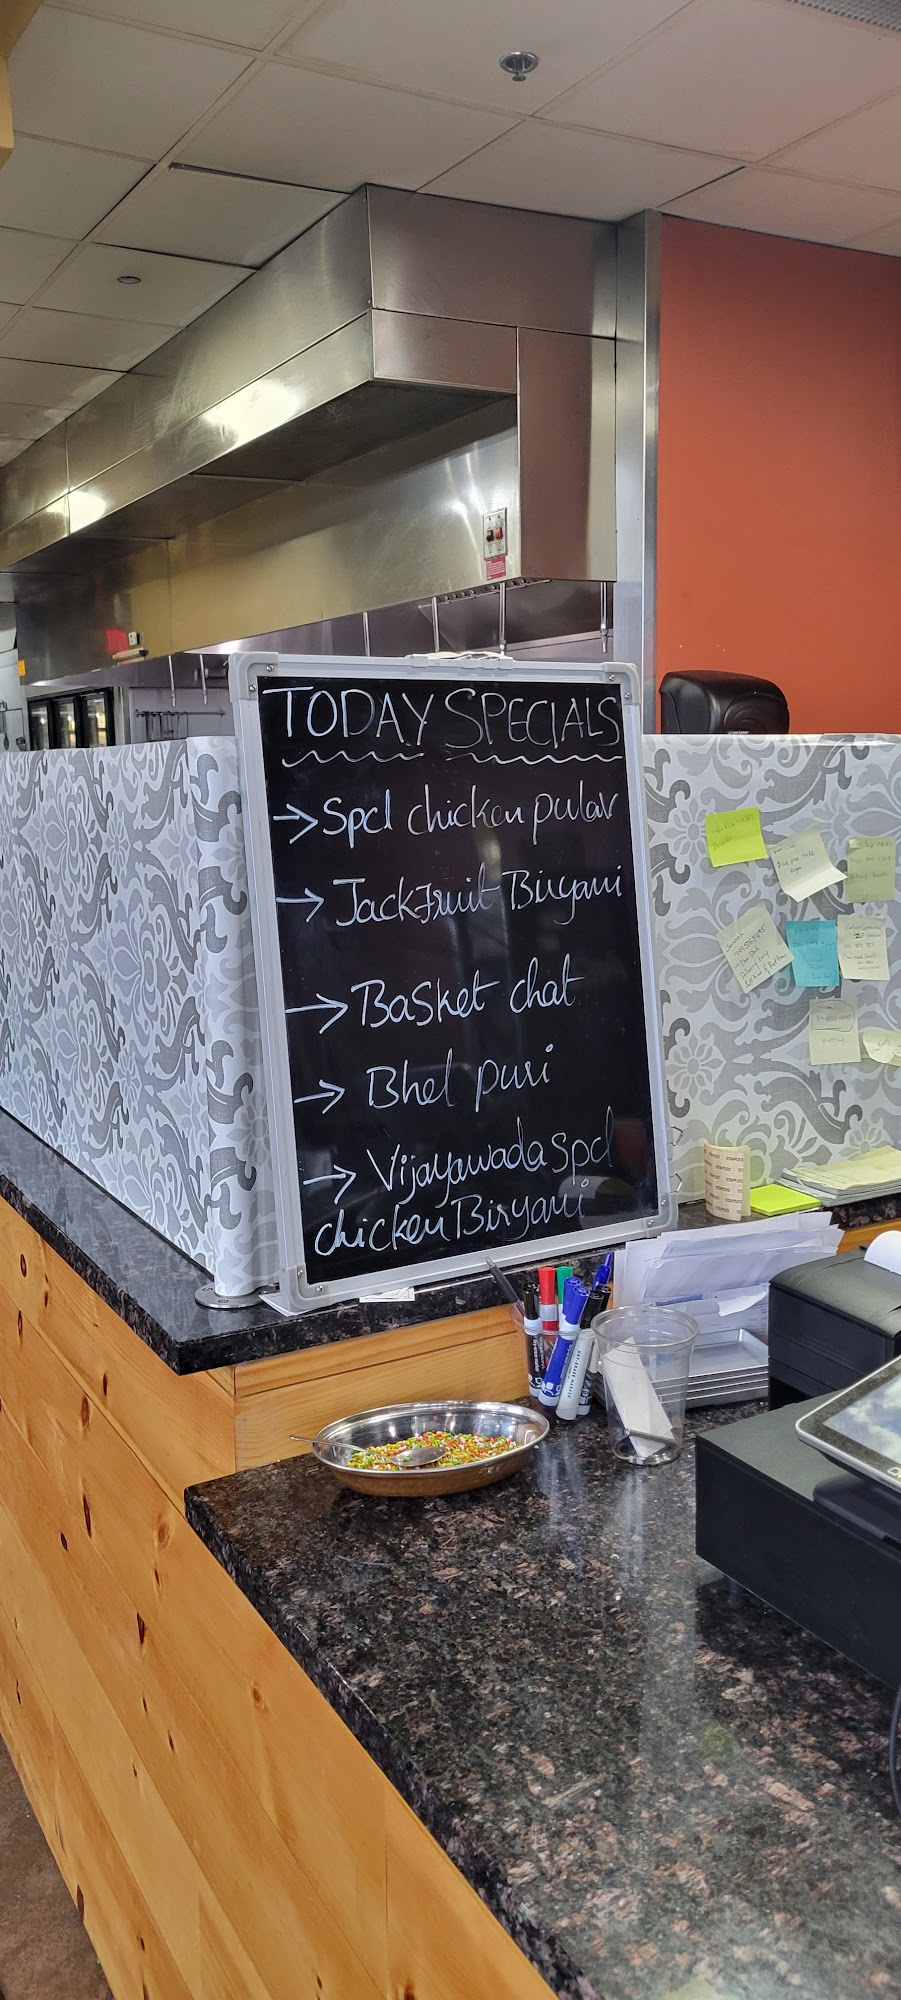 TODAY SPECIALS
→ Spcl chicken pulav
→ Jackfruit Biryani
→ Basket chat
→ Bhel puri
→ Vijayawada spcl
chicken Biryani